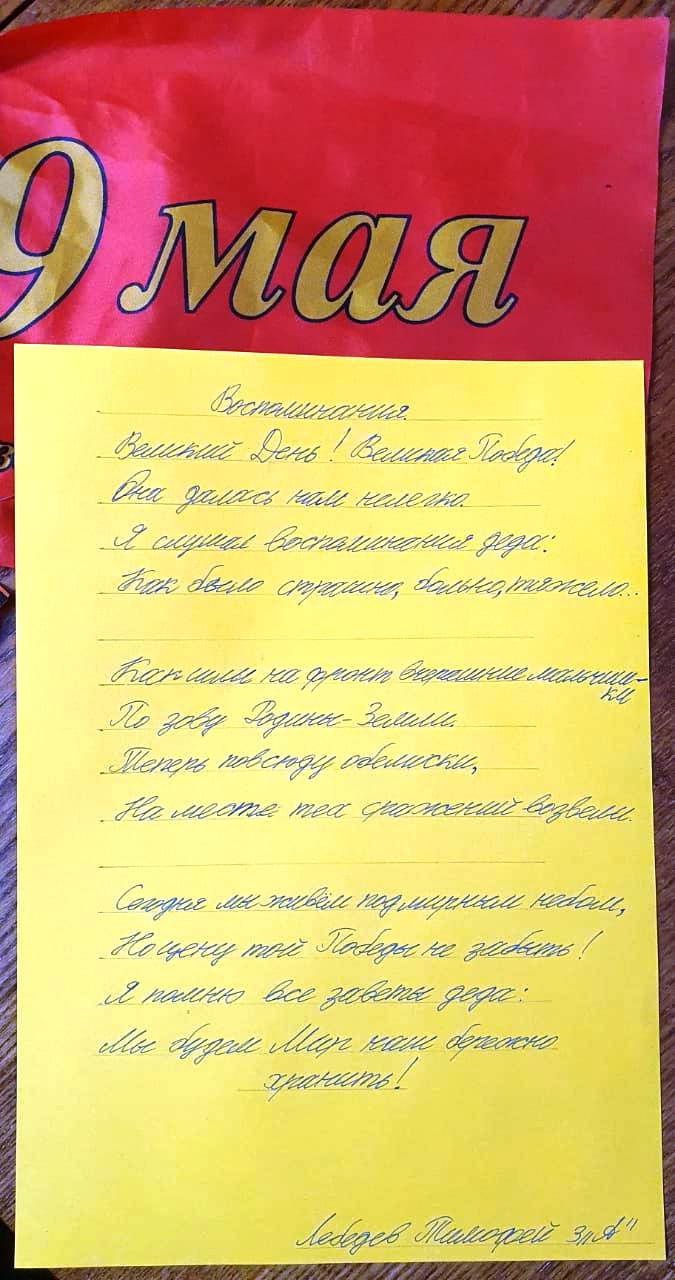 9 мая
Воспоминания.
Великий День! Великая Победа!
Она далась нам нелегко.
Я слушал воспоминания деда:
Как было страшно, больно, тяжело...
Как шли на фронт вчерашние мальчиш-
ки
По зову Родины-Земли.
Теперь повсюду обелиски,
На месте тех сражений возвели.
Сегодня мы живём под мирным небом,
Но цену той Победы не забыть!
Я помню все заветы деда:
Мы будем Мир наш бережно
хранить!
Лебедев Тимофей 3 „А"